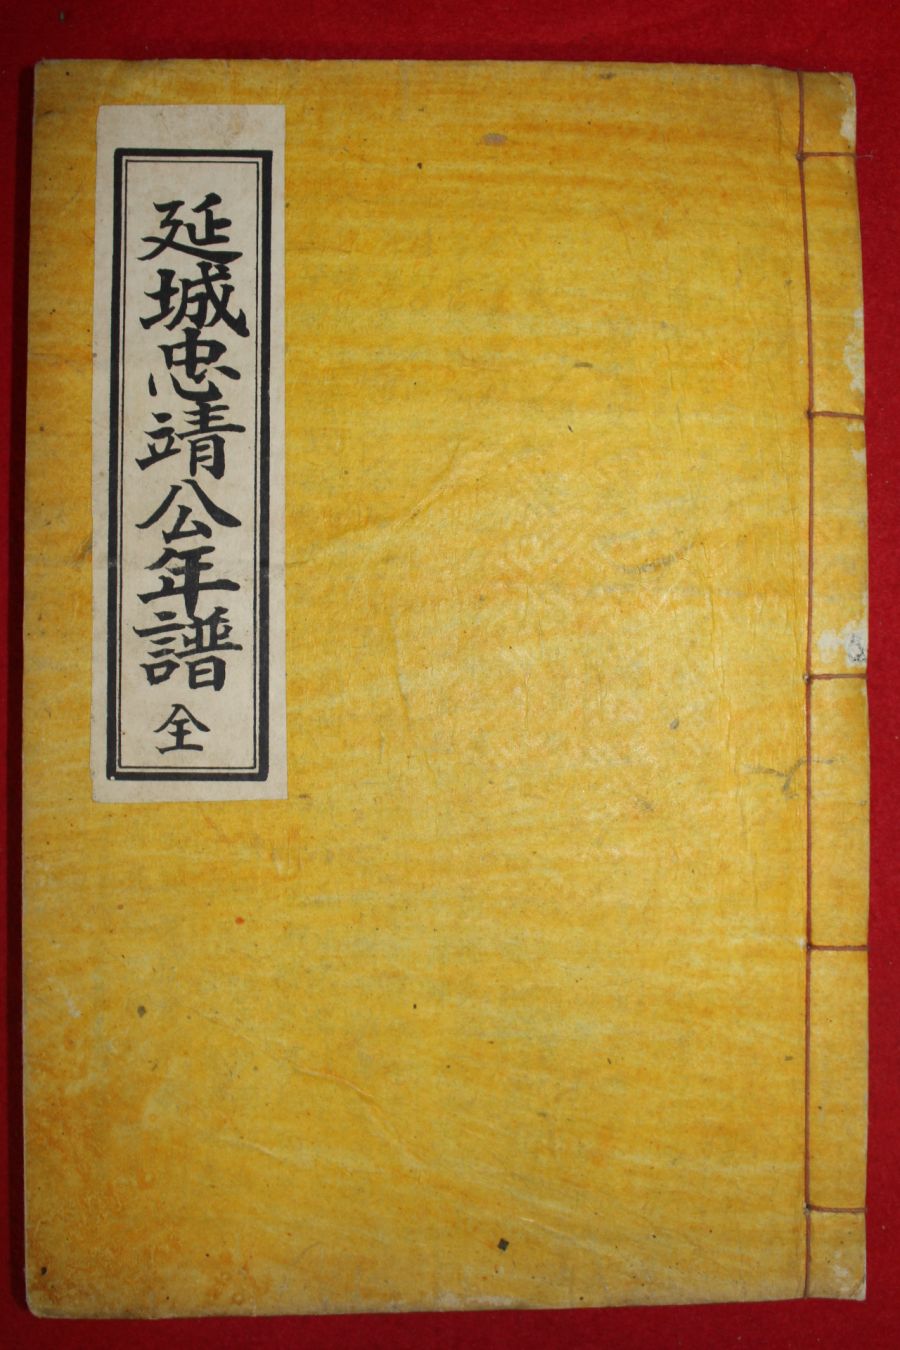 延城忠靖公年譜 全